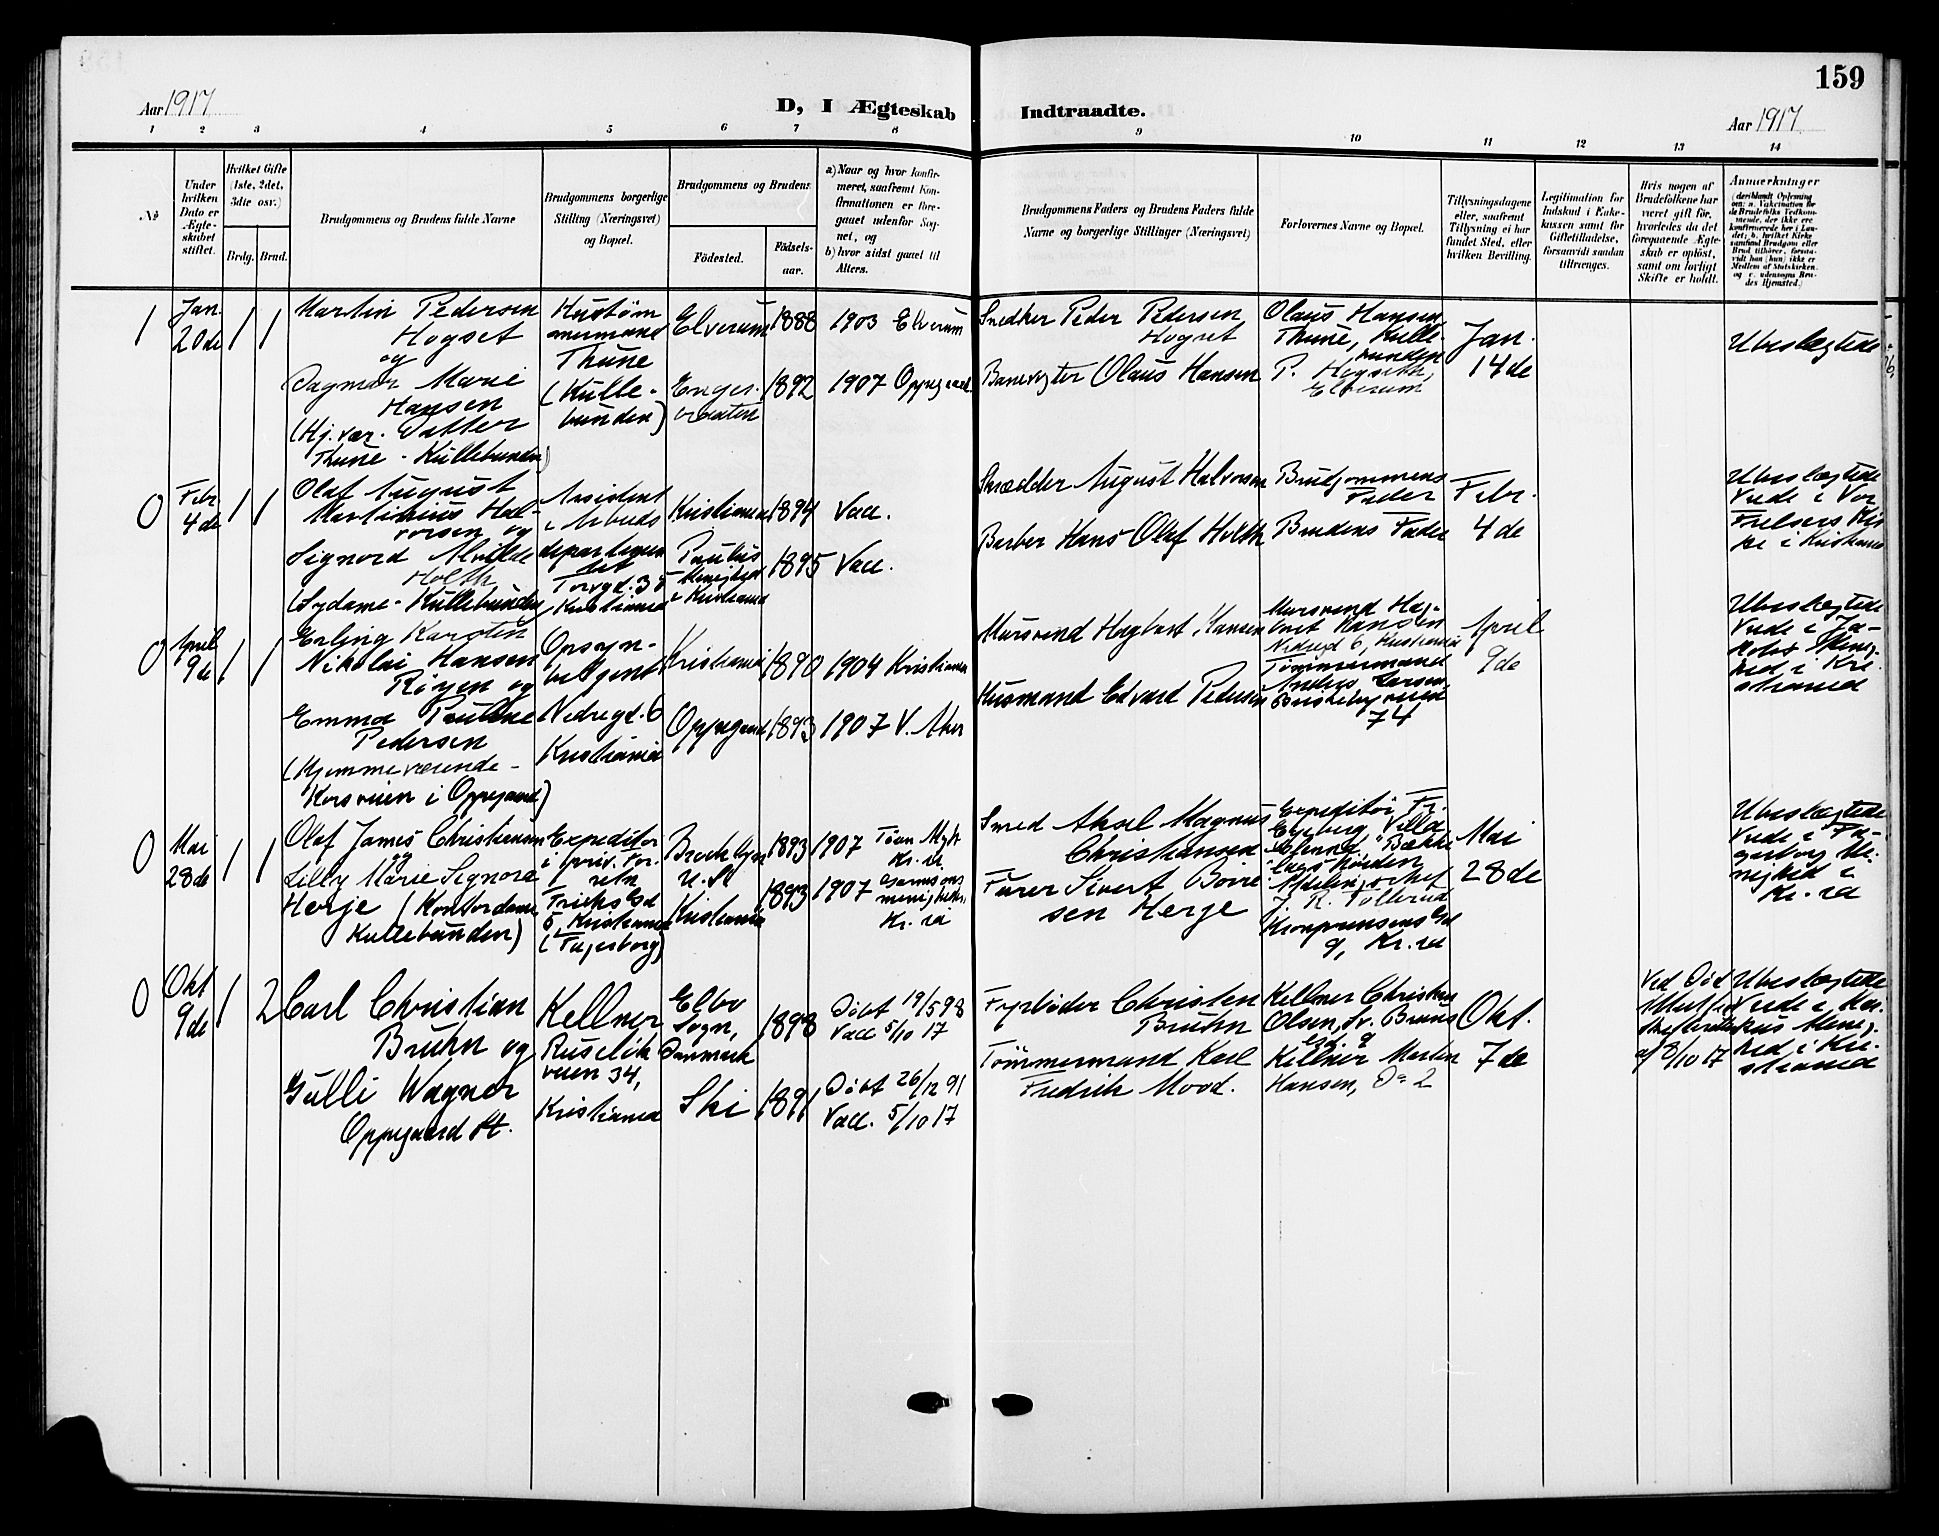 159
Aar 1917
D, I Ægteskab Indtraadte.
Aar 1917
1 2 3 4 5 6 7 8 9 10 11 12 13 14
№
Under hvilken Dato er Ægteskabet stiftet.
Hvilket Gifte (1ste, 2det, 3die osv.)
Brdg. Brud.
Brudgommens og Brudens fulde Navne
Brudgommens borgerlige Stilling (Næringsvei) og Bopæl.
Brudgommens og Brudens
Födested.
Födsels-aar.
a) Naar og hvor konfirmeret, saafremt Konfirmationen er foregaaet udenfor Sognet, og
b) hvor sidst gaaet til Alters.
Brudgommens Faders og Brudens Faders fulde Navne og borgerlige Stillinger (Næringsvei)
Forlovernes Navne og Bopæl.
Tillysningsdagene eller, saafremt Tillysning ei har fundet Sted, efter hvilken Bevilling.
Legitimation for Indskud i Enkekassen samt for Giftetilladelse, forsaavidt saadan tiltrænges.
Hvis nogen af Brudefolkene har været gift før, hvorledes da det foregaaende Ægteskab er opløst, samt om lovligt Skifte er holdt.
Anmærkninger
1
Jan. 20de
1 1
Martin Pedersen
Hogset
og
Dagmar Marie
Hansen
(Hj.vær. Datter
Thune - Kullebunden)
Hustöm
mermand
Thune
(Kulle-
bunden)
Elverum
1888
1903 Elverum
Enge-
braaten
1892
1907 Oppegaard
Snedker Peder Pedersen
Hogset
Banevogter Olaus Hansen
Olaus Hansen,
Thune, Kulle-
bunden
P. Hogseth,
Elverum
Jan.
14de
Ubeslægtede
0
Febr
4de
1 1
Olaf August
Martinius Hal-
vorsen og
Signora Alvilde
Holth
(Sydame - Kullebunden)
Assistent
i Arbeids
departemen
tet
Torvgd. 35
Kristiania
Kristiania
1894
Vacc.
Paulus
Menighed
i Kristiania
1895
Vacc.
Skrædder August Halvorsen
Barber Hans Olaf Holth
Brudgommens
Fader
Brudens Fader
Febr.
4de
Ubeslægtede
Viede i Vor
Frelsers Kir
ke i Kristiania
0
April
9de
1 1
Erling Karsten
Nikolai Hansen
Röyen og
Emma Pauline
Pedersen
(Hjemmeværende -
Korsveien i Oppegaard)
Opsyn-
betjent
Nedregd. 6
Kristiania
Kristiania
1890
1904 Kristiania
Oppegaard
1893
1907 V. Aker
Mursvend Hagbart Hansen
Husmand Edvard Pedersen
Mursvend Hag-
bart Hansen
Nedregd 6, Kristiania
Tömmermand
Anders Larsen
Briskebyveien
74
April
9de
Ubeslægtede
Viede i Ja-
kobs Menig-
hed i Kri-
stiania
0
Mai
28de
1 1
Olaf James Christiansen
og
Lilly Marie Signora
Herje (Kontordame
Kullebunden)
Expeditör
i priv. For-
retn
Fricks Gd
5, Kristiania
(Fagerborg)
Brooklyn
U. St
1893
1907
Kr.ia
Kristiania
1893
1907 Garnisons
menigheden,
Kr.ia
Smed Aksel Magnus
Christiansen
Furer Sivert Boye
sen Herje
Expeditör Fr.
Villa
J. R. Tollerud
Kronprinsens Gd
9, Kr.ia
Mai
28de
Ubeslægtede
Viede i Fa-
gerborg Me-
nighed i
Kr.ia
0
Okt
9de
1 2
Carl Christian
Bruhn og
Gulli Wagner
Oppegaard St.
Kellner
Ruselök
veien 34,
Kristiania
Elbo
Sogn,
Danmark
1898
Döbt 19/5 98
Vacc 5/10 17
Ski
1891
Döbt 26/12 91
Vacc. 5/10 17
Fyrböder Christen
Bruhn
Tömmermand Karl
Fredrik Mood.
Kellner Christian
Olsen, Sv. Bruns
gd. 9
Kellner Martin
Hansen, Do 2
Okt.
7de
Ved Död
Attest fra
Skifteretten
af 8/10 17
Ubeslægtede
Viede i Mar
kus Menig-
hed i Kri-
stiania